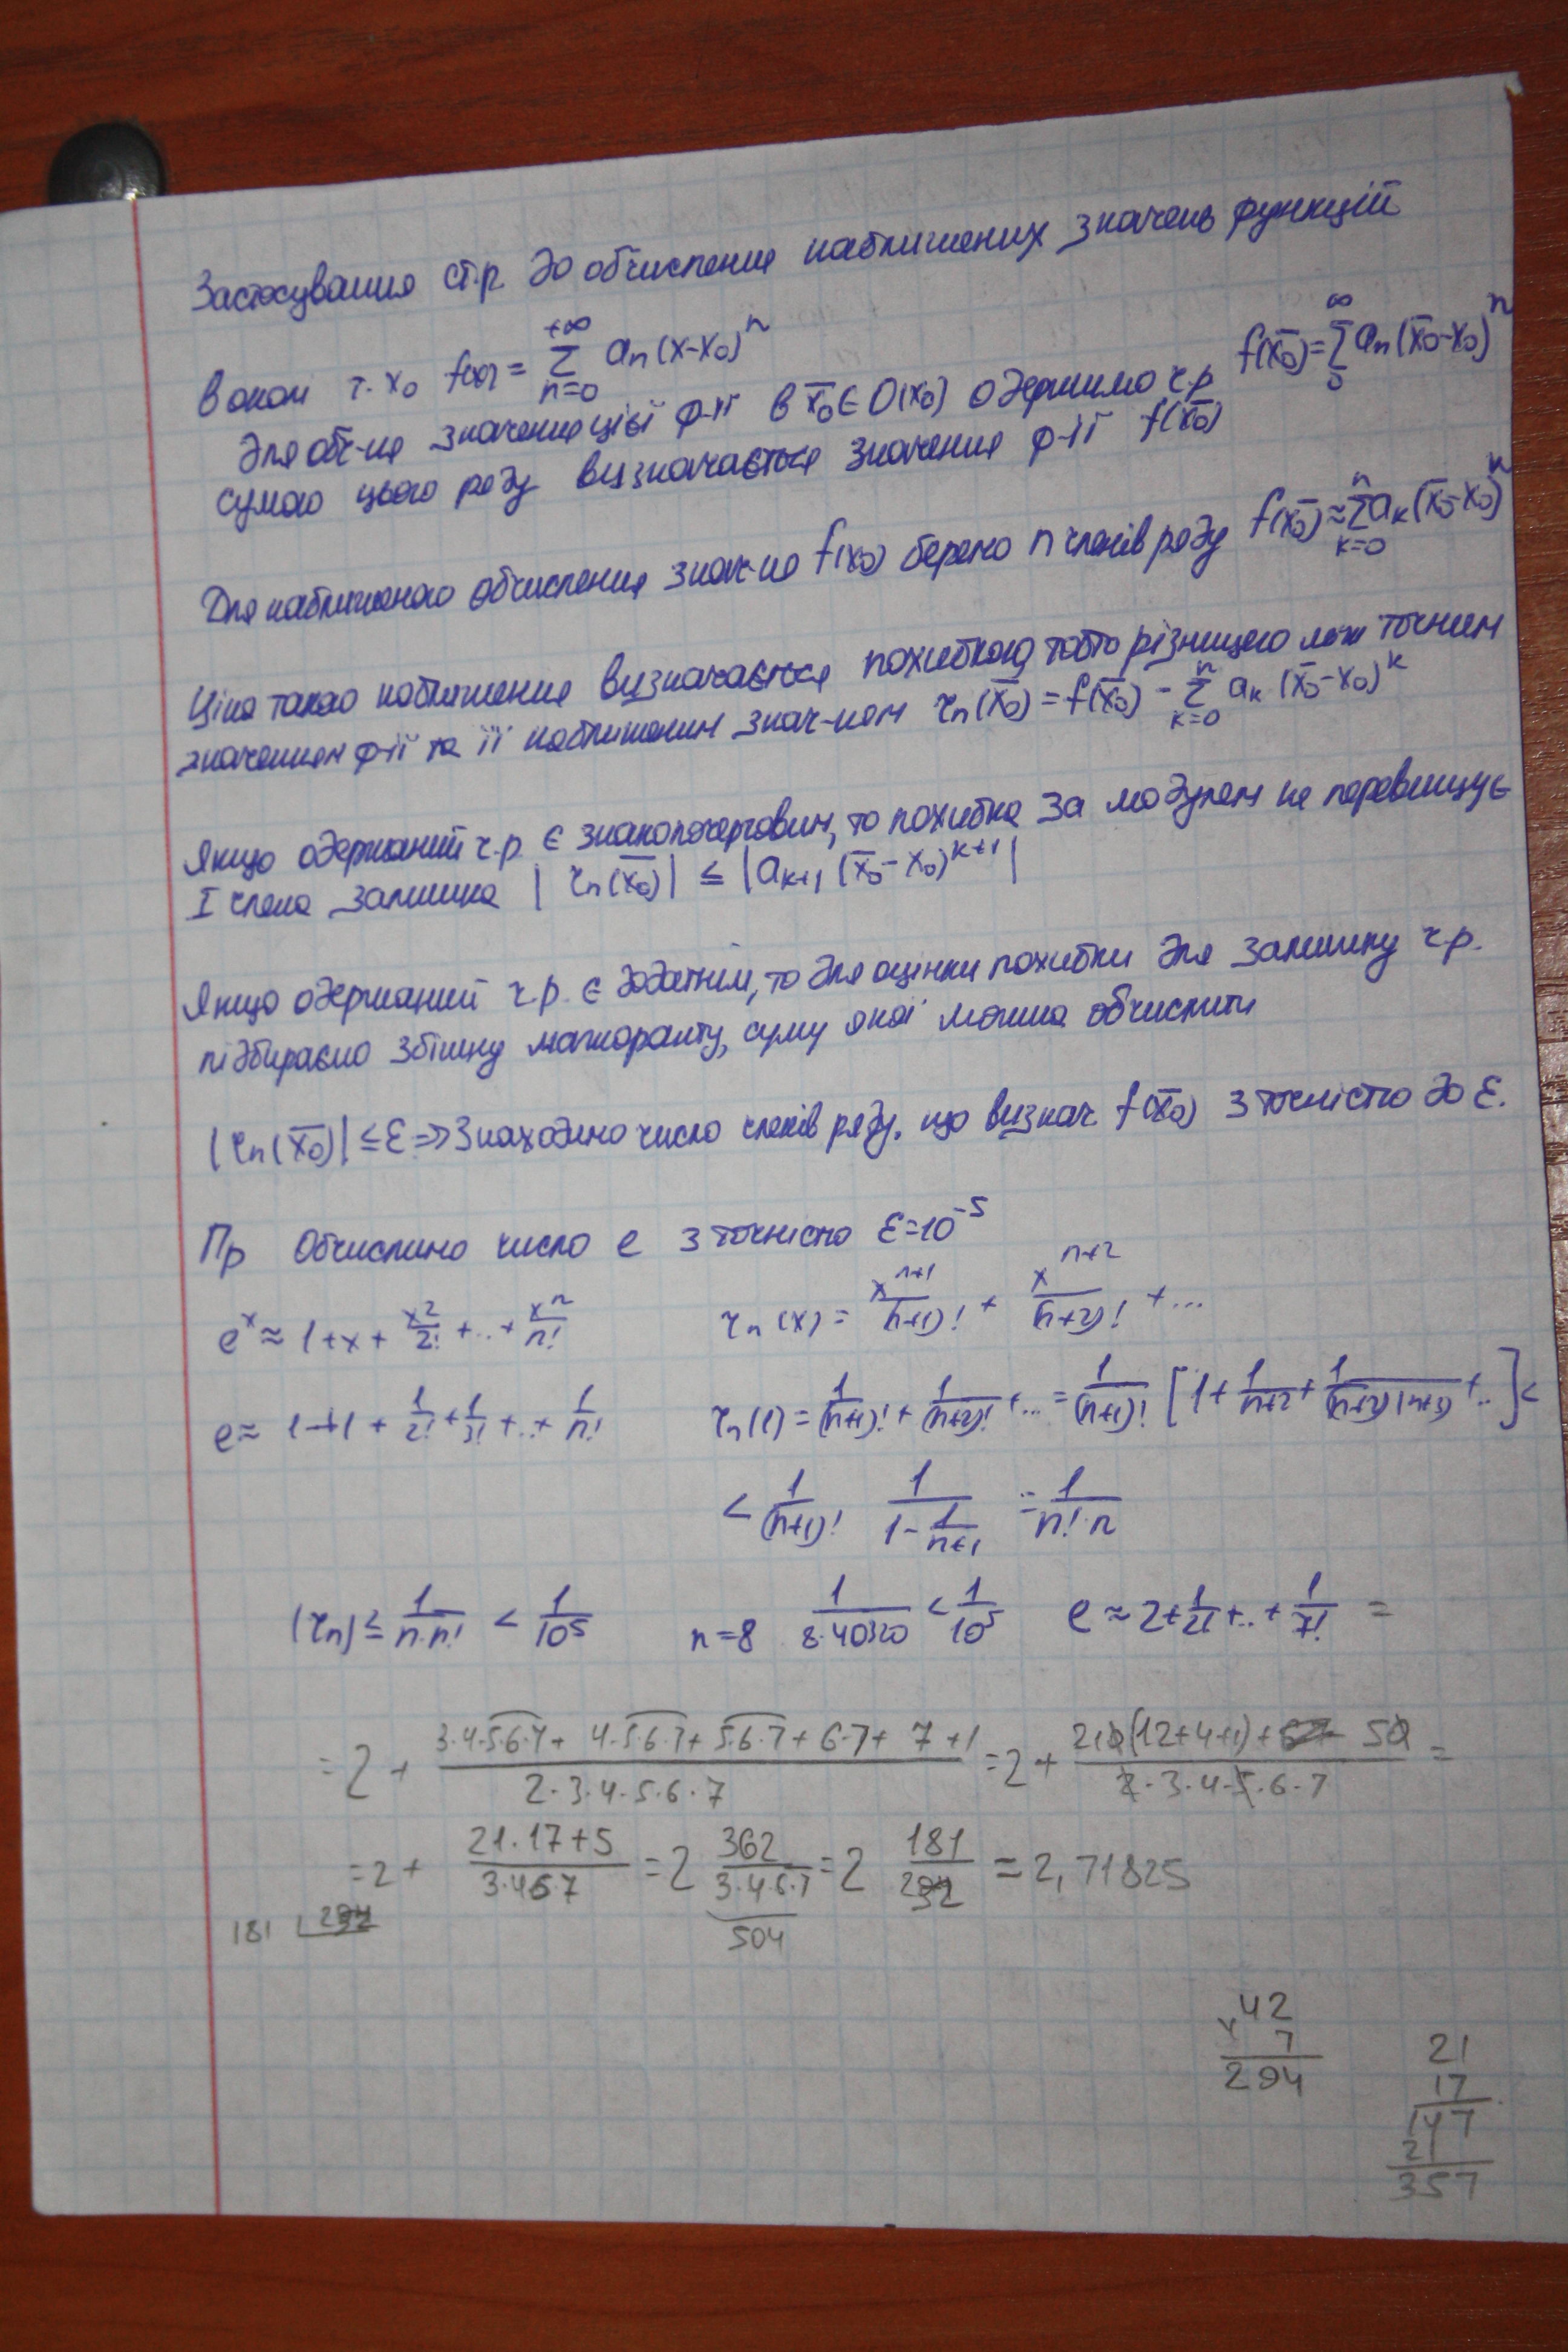 Застосування ст.р. до обчислення наближених значень функцій
В окол т. x₀ f(x) = Σ_{n=0}^{+∞} aₙ(x-x₀)ⁿ
Для обч-ня значення цієї ф-ії в x̄₀ ∈ O(x₀) одержимо ч.р f(x̄₀) = Σ_{0}^{∞} aₙ(x̄₀-x₀)ⁿ
сумою цього ряду визначається значення ф-ії f(x̄₀)
Для наближеного обчислення знач-ня f(x₀) беремо n членів ряду f(x̄₀) ≈ Σ_{k=0}^{n} aₖ(x̄₀-x₀)ⁿ
Ціна такого наближення визначається похибкою, тобто різницею між точним
значенням ф-ії та її наближеним знач-ням rₙ(x̄₀) = f(x̄₀) - Σ_{k=0}^{n} aₖ(x̄₀-x₀)ᵏ
Якщо одержаний ч.р. є знакопочерговим, то похибка за модулем не перевищує
I члена залишка |rₙ(x̄₀)| ≤ |aₖ₊₁(x̄₀-x₀)ᵏ⁺¹|
Якщо одержаний ч.р. є додатнім, то для оцінки похибки для залишку ч.р.
підбираємо збіжну мажоранту, суму якої можна обчислити
|rₙ(x̄₀)| ≤ ε ⇒ Знаходимо число членів ряду, що визнач. f(x̄₀) з точністю до ε.
Пр Обчислимо число e з точністю ε=10⁻⁵
eˣ ≈ 1+x+x²/2!+..+xⁿ/n! rₙ(x) = xⁿ⁺¹/(n+1)! + xⁿ⁺²/(n+2)! + ...
e ≈ 1+1+1/2!+1/3!+..+1/n! rₙ(1) = 1/(n+1)! + 1/(n+2)! + ... = 1/(n+1)! [1+1/(n+2)+1/((n+2)(n+3))+..] <
< 1/(n+1)! 1/(1-1/(n+1)) = 1/(n!·n)
|rₙ| ≤ 1/(n·n!) < 1/10⁵ n=8 1/(8·40320) < 1/10⁵ e ≈ 2+1/2!+..+1/7! =
= 2 + (3·4·5·6·7+4·5·6·7+5·6·7+6·7+7+1)/(2·3·4·5·6·7) = 2 + (210(12+4+1)+50)/(2·3·4·5·6·7) =
= 2 + (21·17+5)/(3·4·6·7) = 2 362/(3·4·6·7) = 2 181/252 = 2,71825
504
181
42
7
294
21
17
147
21
357